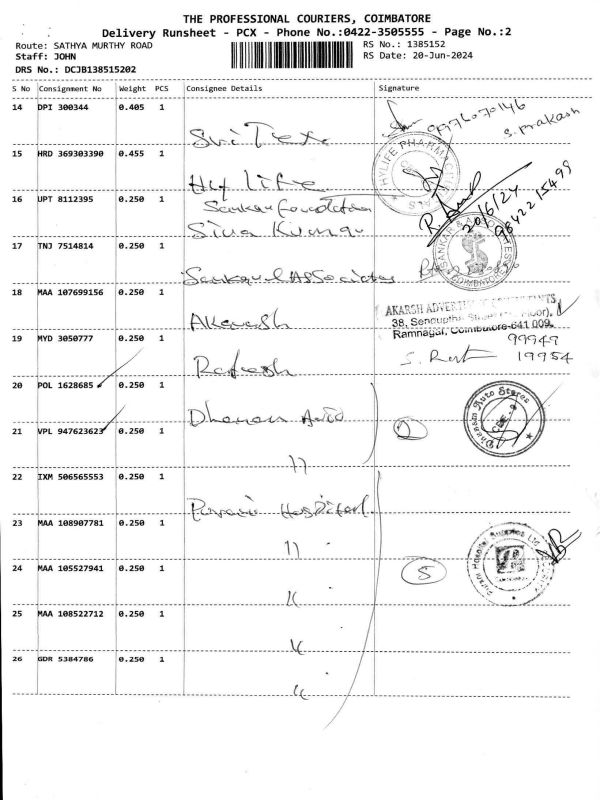 THE PROFESSIONAL COURIERS, COIMBATORE
Delivery Runsheet - PCX - Phone No.:0422-3505555 - Page No.:2
Route: SATHYA MURTHY ROAD
RS No.: 1385152
Staff: JOHN
RS Date: 20-Jun-2024
DRS No.: DCJB138515202
S No Consignment No Weight PCS Consignee Details Signature
14 DPI 300344 0.405 1
Sri Tex
9976070146
S. Prakash
15 HRD 369303390 0.455 1
Hy life
HYLIFE PHARMA
16 UPT 8112395 0.250 1
Sankar foundation
Siva Kumar
20/6/24
9842215499
17 TNJ 7514814 0.250 1
Associates
SANKAR &
COIMBATORE
18 MAA 107699156 0.250 1
Akarash
AKARSH
38,
Ramnagar, Coimbatore-641 009.
19 MYD 3050777 0.250 1
99949
19954
20 POL 1628685 0.250 1
Dhanam Auto
Dhanam Auto Stores
2
21 VPL 947623623 0.250 1
"
22 IXM 506565553 0.250 1
Hospital
23 MAA 108907781 0.250 1
"
Hospital Supplies
24 MAA 105527941 0.250 1
"
5
25 MAA 108522712 0.250 1
"
26 GDR 5384786 0.250 1
"